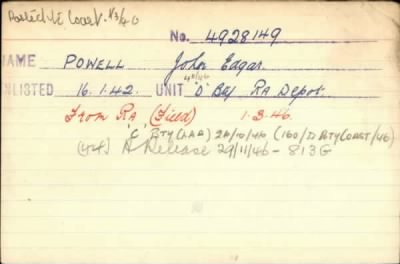 Coast. 
No. 4928149
NAME POWELL John Edgar.
ENLISTED 16.1.42. UNIT "D" Bty RA Depot.
From RA (Field) 1.3.46.
'C' Bty (LAA) 24/10/46 (160/D Bty COAST/46)
(44) A Release 29/11/46 - 813G